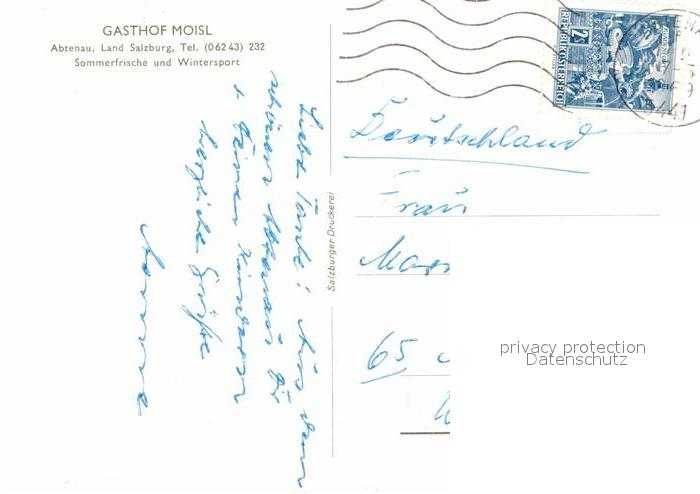 GASTHOF MOISL
Abtenau, Land Salzburg, Tel. (0 62 43) 232
Sommerfrische und Wintersport
Liebe Tante! Aus dem
schönen Abtenau Dir
+ Deinen Kindern
herzliche Grüße
Salzburger Druckerei
2 S
REPUBLIK ÖSTERREICH
Deutschland
Frau
65
privacy protection
Datenschutz